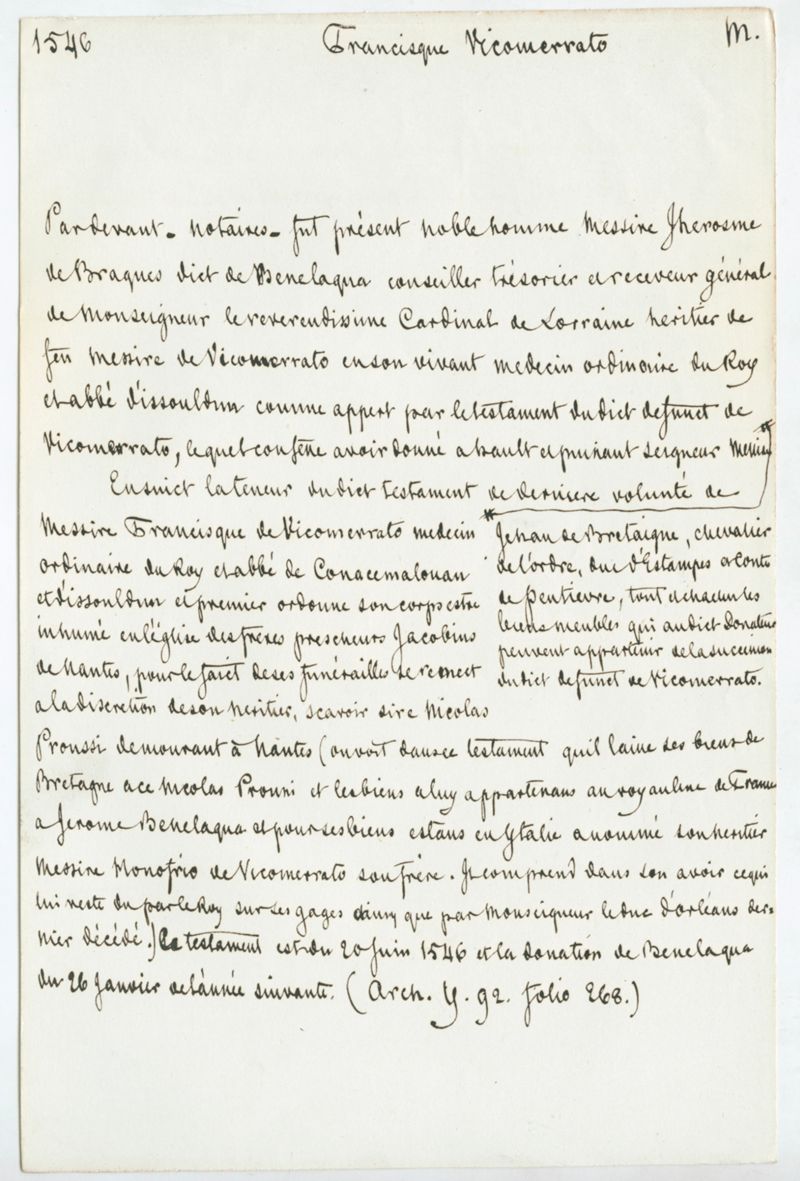 1546 Francisque Vicomerrato M.
Par devant - notaires - fut présent noble homme Messire Jherosme
de Bragues dict de Benelaqua conseiller trésorier et receveur général
de Monseigneur le reverendissime Cardinal de Lorraine heritier de
feu Messire de Vicomerrato en son vivant medecin ordinaire du Roy
et abbé d'issouldun comme appert par le testament du dict defunct de
Vicomerrato, lequel confesse avoir donné a hault et puissant seigneur Messire *
* Jehan de Bretaigne, chevalier
de l'ordre, duc d'Estampes et Conte
de Pentievre, tout et chacun les
biens meubles qui audict Donateur
peuvent appartenir de la succession
du dict defunct de Vicomerrato.
Ensuict la teneur du dict testament de derniere volunté de
Messire Francisque de Vicomerrato medecin
ordinaire du Roy et abbé de Conacemalouan
et d'issouldun et premier ordonne son corps estre
inhumé en l'église des frères prescheurs Jacobins
de Nantes, pour le faict de ses funérailles se remect
a la discretion de son heritier, scavoir sire Nicolas
Proussi demourant à Nantes (on voit dans ce testament qu'il laisse ses biens de
Bretagne a ce Nicolas Proussi et les biens a luy appartenans au royaulme de France
a Jerome Benelaqua et pour ses biens estans en Ytalie a nommé son heritier
Messire Monofrio de Vicomerrato son frère. Il comprend dans son avoir ce qui
lui reste du par le Roy sur ses gages ainsy que par Monseigneur le duc d'orléans der-
nier décédé.) Le testament est du 20 Juin 1546 et la donation de Benelaqua
du 26 Janvier de l'année suivante. (Arch. Y. 92. folio 268.)